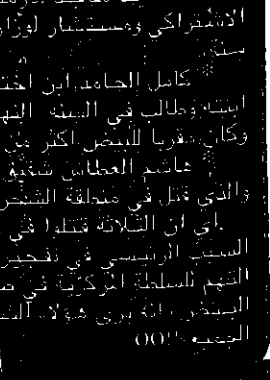 الاشتراكي ومستشار لوزار
سنة.
كامل الحامد ابن اخت
ابنه وطالب في السنة النه
وكان مقربا للبيض اكثر من
هاشم العطاس شقيق
والذي قتل في منطقة الشحر
اي ان الثلاثة قتلوا في
السبب الرئيسي في تفجير
التهم للسلطة المركزية في ص
البيض، انه يرى هؤلاء الش
الجميع